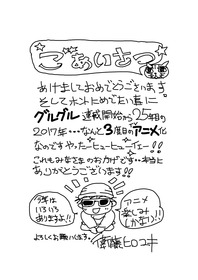 ごあいさつ
あけましておめでとうございます。
そしてホントにめでたい事に
グルグル連載開始から25年目の
2017年…なんと3度目のアニメ化
なのですやったーヒューヒューイェー!!
これもみなさまのおかげです…本当に
ありがとうございます!!
今年は
いろいろ
ありますよ!!
アニメ
楽しみ
しかない!!
よろしくお願いします。
衛藤ヒロユキ